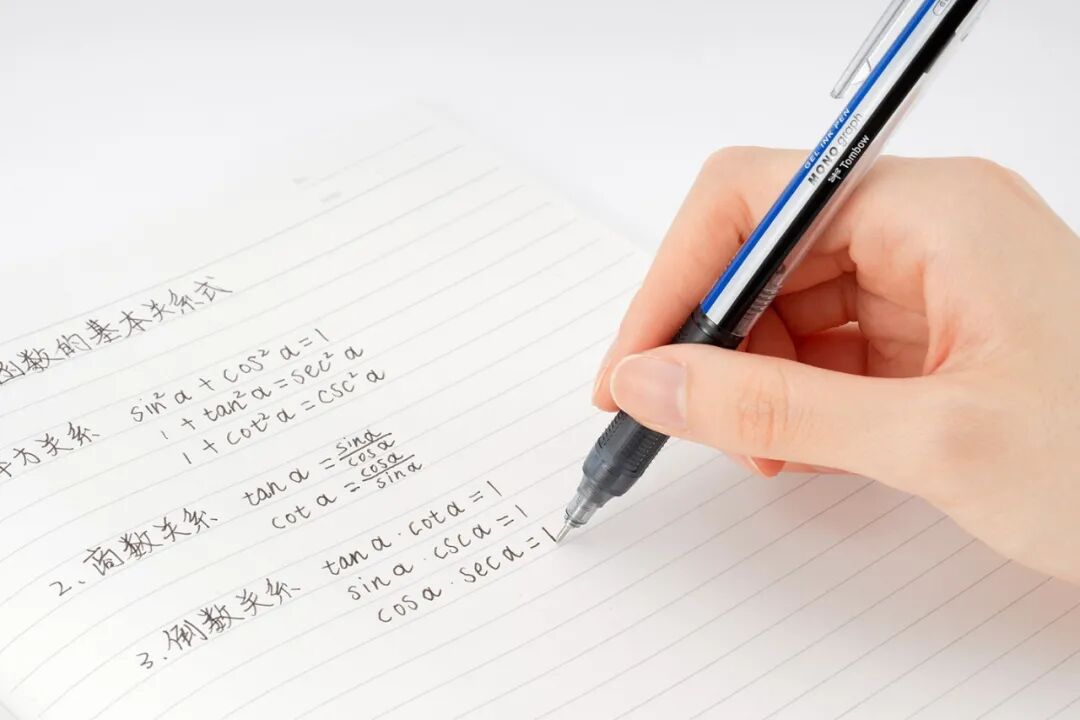 函数的基本关系式
平方关系 sin²α + cos²α = 1
1 + tan²α = sec²α
1 + cot²α = csc²α
2、商数关系 tanα = sinα/cosα
cotα = cosα/sinα
3、倒数关系 tanα·cotα = 1
sinα·cscα = 1
cosα·secα = 1
GEL INK PEN
MONO graph
Tombow